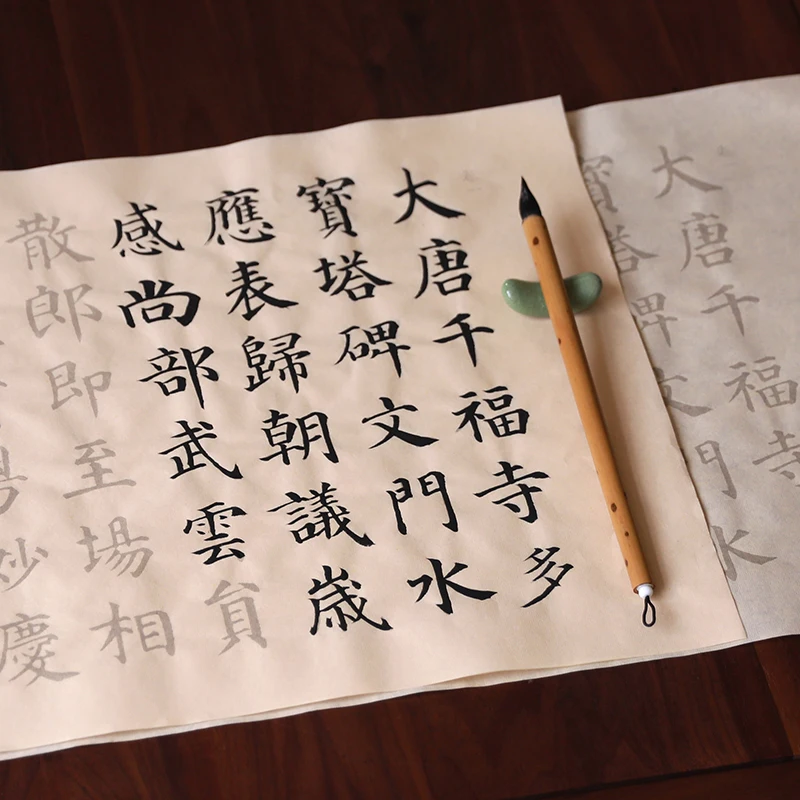 大唐千福寺
水
大唐千福寺多
寶塔碑文門水
應表歸朝議歲
感尚部武雲貟
散郎即至場相
妙慶